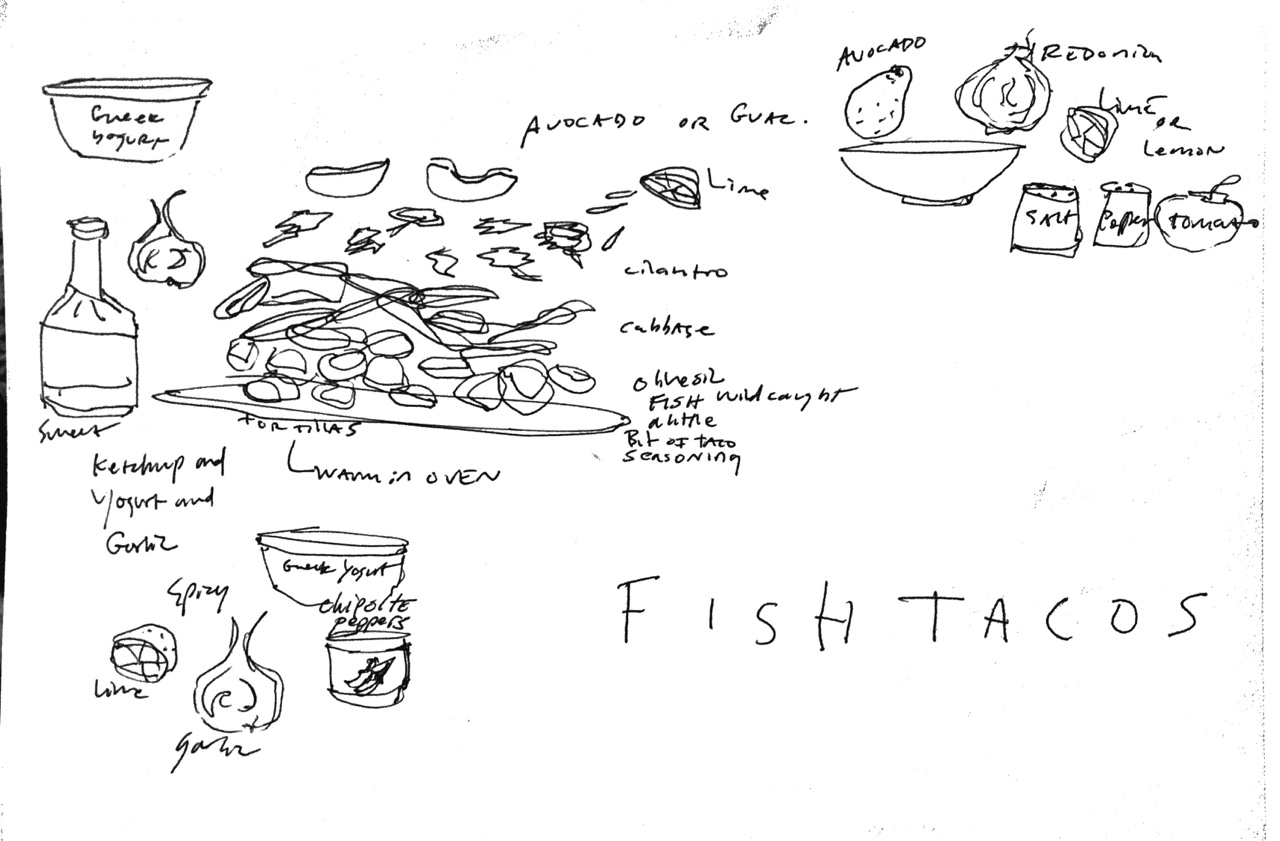 Greek
Yogurt
AVOCADO OR GUAC.
Lime
cilantro
cabbage
olive oil
FISH wild caught
a little
BIT OF TACO
SEASONING
TORTILLAS
WARM in OVEN
Sweet
Ketchup and
Yogurt and
Garlic
Spicy
Greek Yogurt
chipolte
peppers
Lime
garlic
AVOCADO
RED onion
Lime
OR
Lemon
SALT
Pepper
TOMATO
FISH TACOS